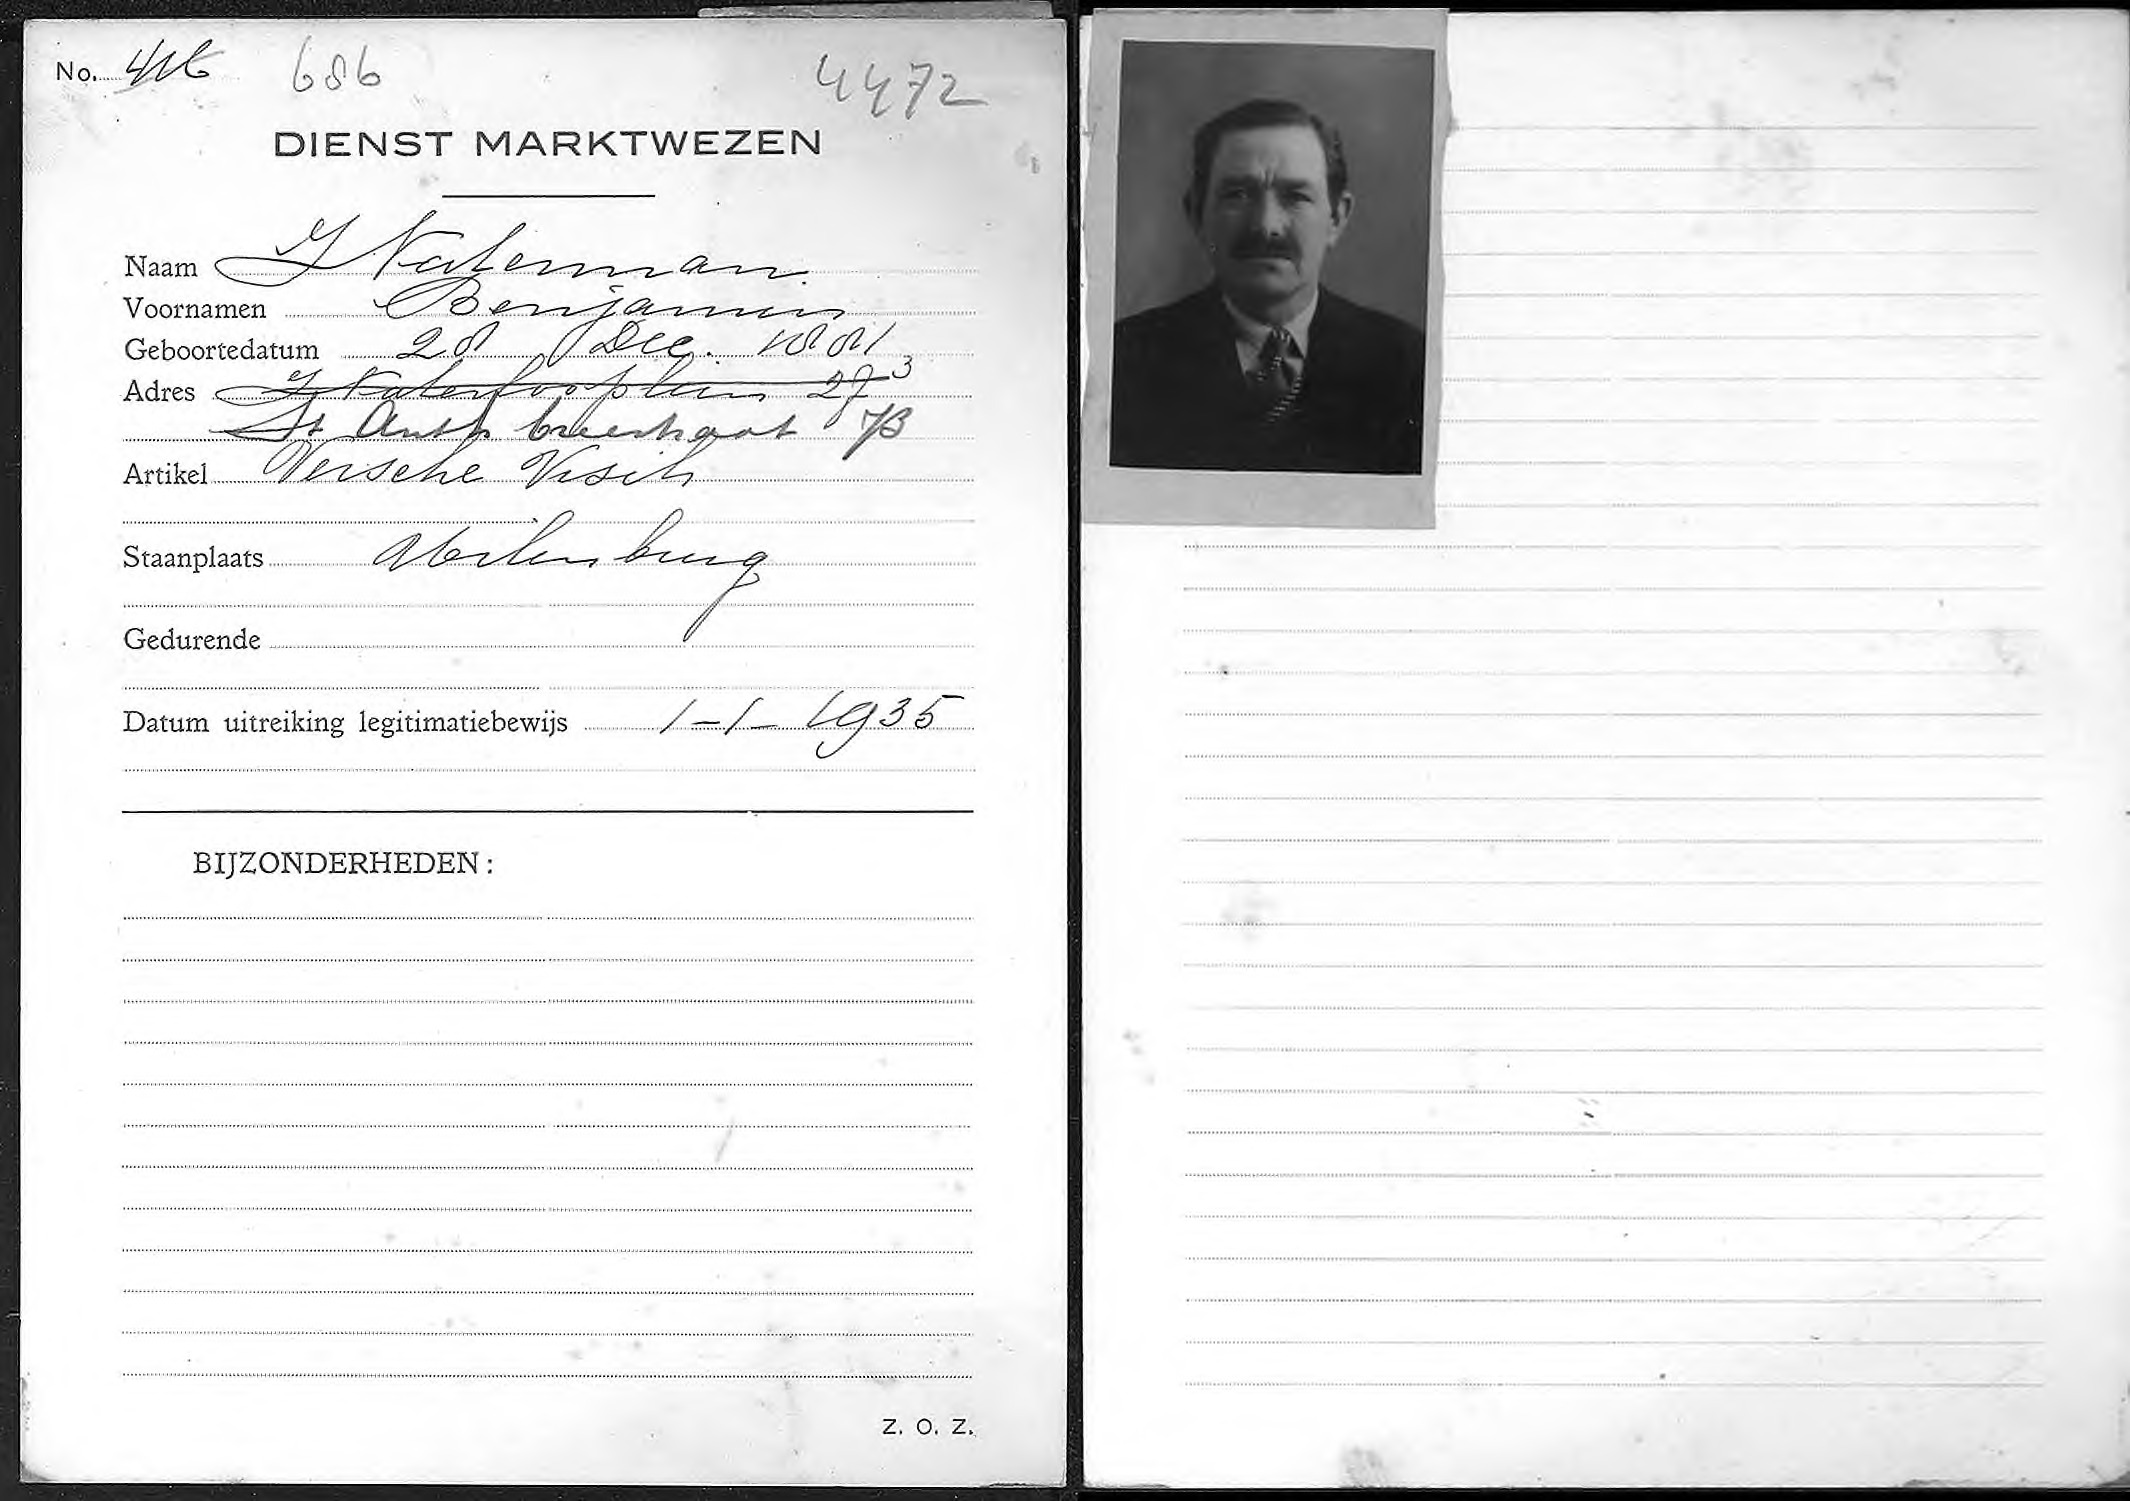 No. 416 686 4472
DIENST MARKTWEZEN
Naam Waterman.
Voornamen Benjamin
Geboortedatum 28 Dec. 1881
Adres Waterlooplein 27 3
St Anth breestraat 73
Artikel Versche Visch
Staanplaats Uilenburg
Gedurende
Datum uitreiking legitimatiebewijs 1-1-1935
BIJZONDERHEDEN:
Z. O. Z.